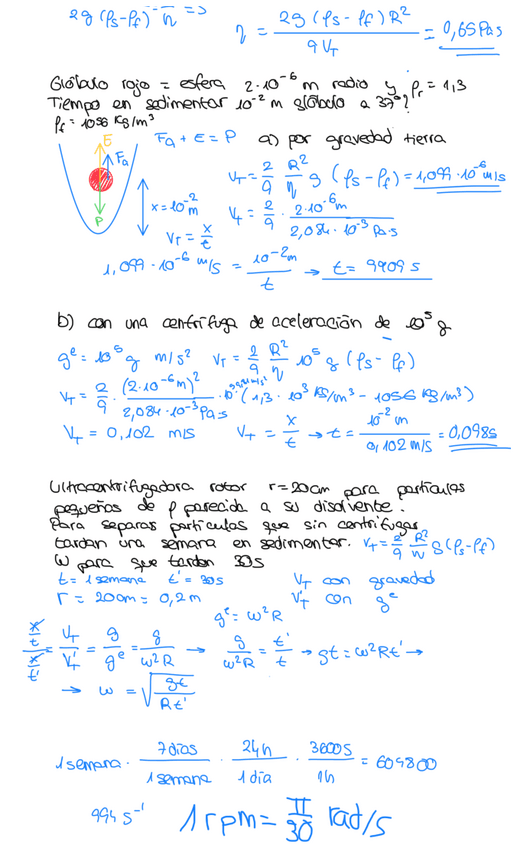 2g (ρs-ρf) η =>
η = 2g (ρs - ρf) R² / 9 VT = 0,65 Pa·s
Glóbulo rojo = esfera 2·10⁻⁶ m radio y ρr = 1,3
Tiempo en sedimentar 10⁻² m glóbulo a 37º?
ρf = 1056 Kg/m³
Fa + E = P a) por gravedad tierra
E
Fa
P
x = 10⁻² m
VT = x/t
VT = 2/9 R²/η g (ρs - ρf) = 1,099·10⁻⁶ m/s
VT = 2/9 · 2·10⁻⁶ m / 2,084·10⁻³ Pa·s
1,099·10⁻⁶ m/s = 10⁻² m / t → t = 9909 s
b) con una centrífuga de aceleración de 10⁵ g
gᵉ = 10⁵ g m/s² VT = 2/9 R²/η 10⁵ g (ρs - ρf)
VT = 2/9 · (2·10⁻⁶ m)² / 2,084·10⁻³ Pa·s · 10⁵ · (1,3·10³ Kg/m³ - 1056 Kg/m³)
VT = 0,102 m/s VT = x/t → t = 10⁻² m / 0,102 m/s = 0,098s
Ultracentrifugadora rotor r=20cm para partículas
pequeñas de ρ parecida a su disolvente.
Para separar partículas que sin centrifugar
tardan una semana en sedimentar. VT = 2/9 R²/η g (ρs - ρf)
ω para que tarden 30s
t = 1 semana t' = 30s VT con gravedad
r = 20cm = 0,2 m V'T con gᵉ
gᵉ = ω²R
x/t / x/t' = VT/V'T = g/gᵉ = g/ω²R → g/ω²R = t'/t → gt = ω²Rt' →
→ ω = √(gt / Rt')
1 semana · 7 días / 1 semana · 24h / 1 día · 3600s / 1h = 604800
994 s⁻¹ 1 rpm = π/30 rad/s